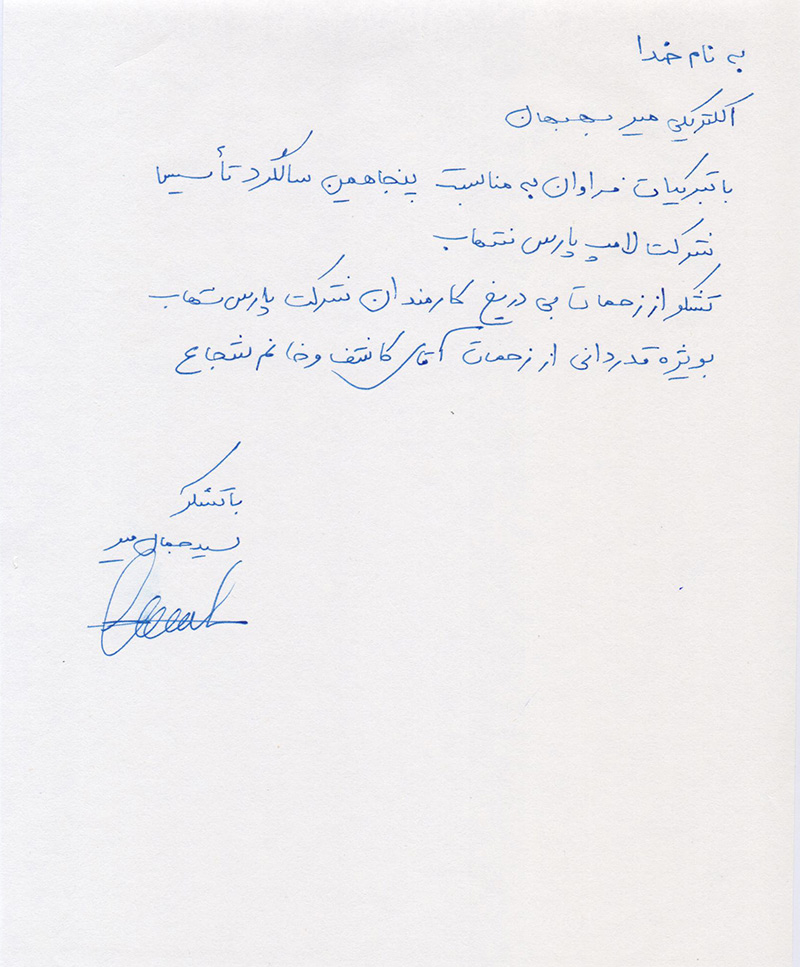 به نام خدا
الکتریکی میر بهبهان
با تبریکات فراوان به مناسبت پنجاهمین سالگرد تأسیس
شرکت لامپ پارس شهاب
تشکر از زحمات بی دریغ کارمندان شرکت پارس شهاب
بویژه قدردانی از زحمات آقای کاشف و خانم شجاع
باتشکر
سید جمال میر